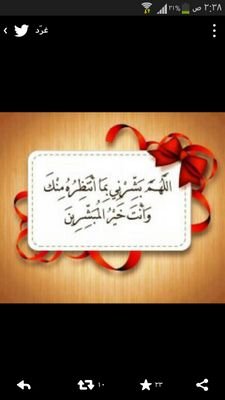 ٢:٣٨ ص ٢١%
غرّد
اللَّهُمَّ بَشِّرْنِي بِمَا أَنْتَظِرُهُ مِنْكَ
وَأَنْتَ خَيْرُ المُبَشِّرِينَ
١٠ ٢٣